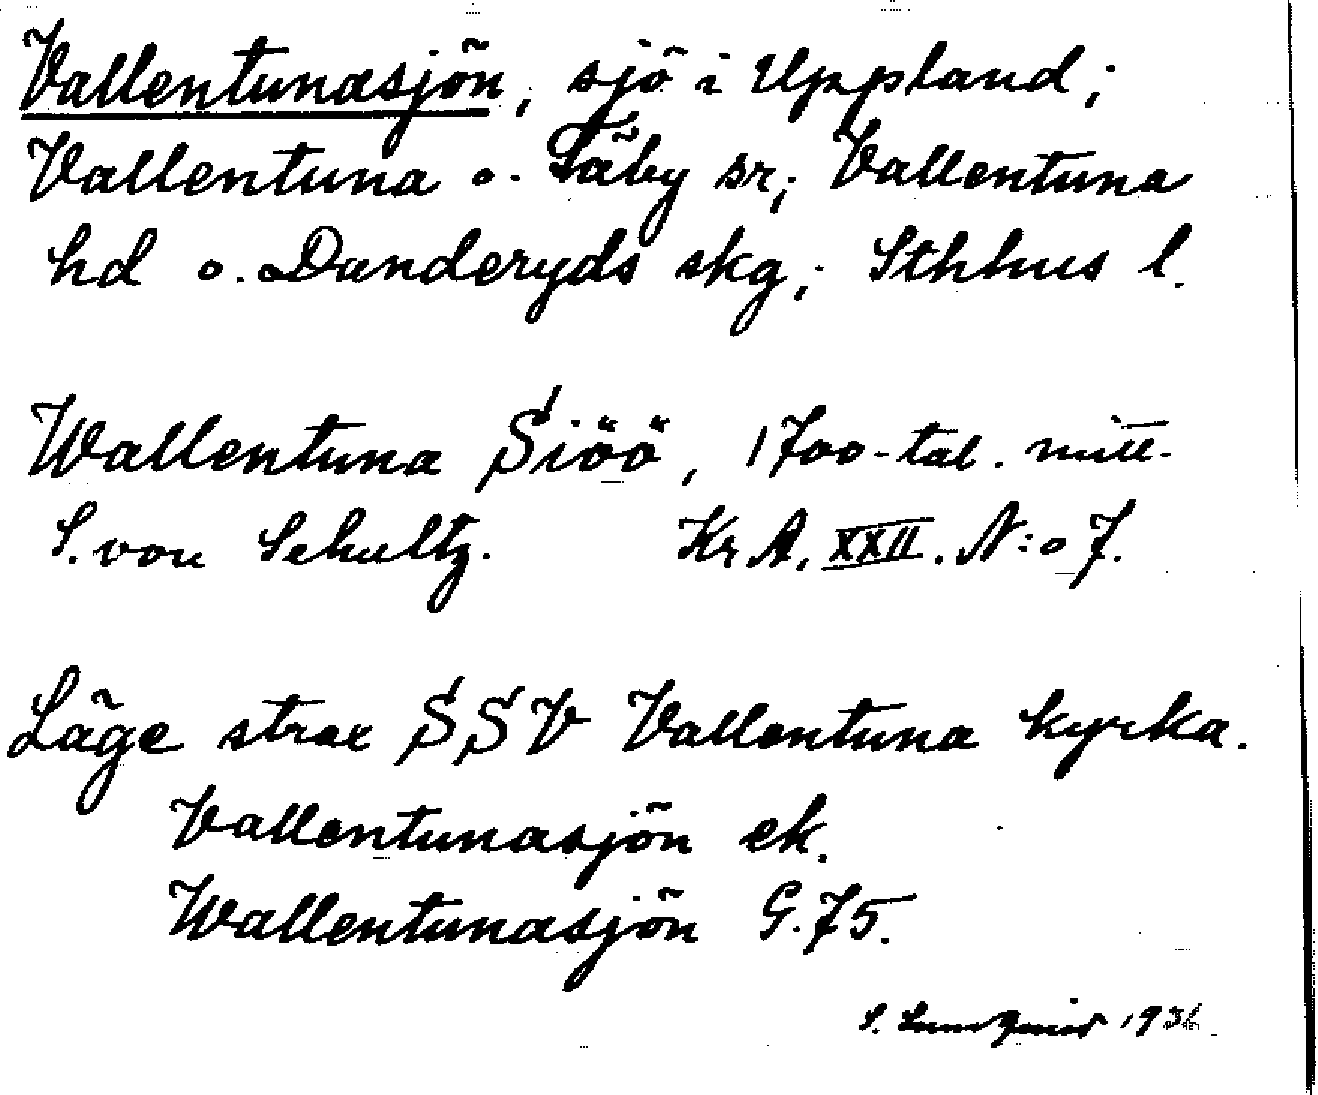 Vallentunasjön, sjö i Uppland;
Vallentuna o. Täby sr; Vallentuna
hd o. Danderyds skg; Sthlms l.
Wallentuna Siöö, 1700-tal. mitt.
S. von Schultz. Kr A. XXII. N:o 7.
Läge strax SSV Vallentuna kyrka.
Vallentunasjön ek.
Wallentunasjön G. 75.
S. Lundqvist